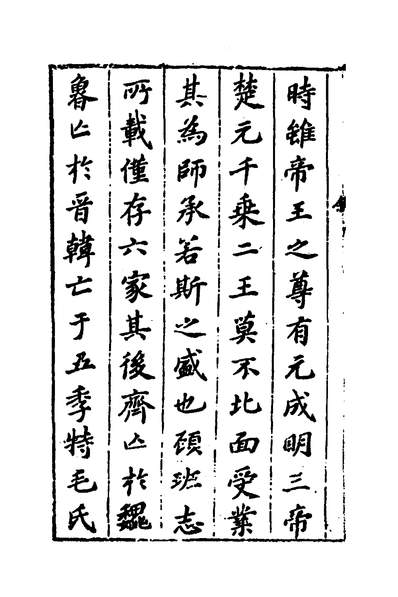 時雖帝王之尊有元成明三帝
楚元千乗二王莫不北面受業
其為師承若斯之盛也顧班志
所載僅存六家其後齊亾於魏
魯亾於晉韓亡于五季特毛氏